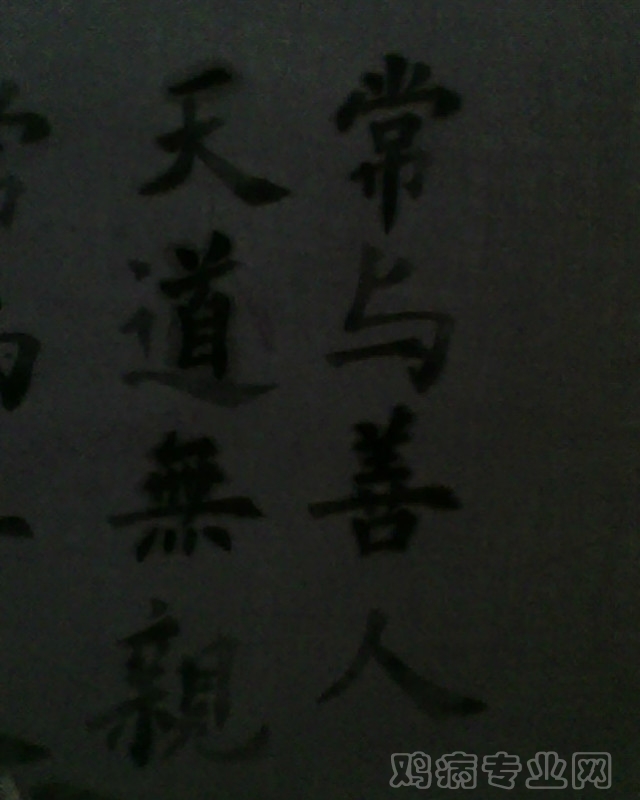 天道無親
常与善人
鸡病专业网